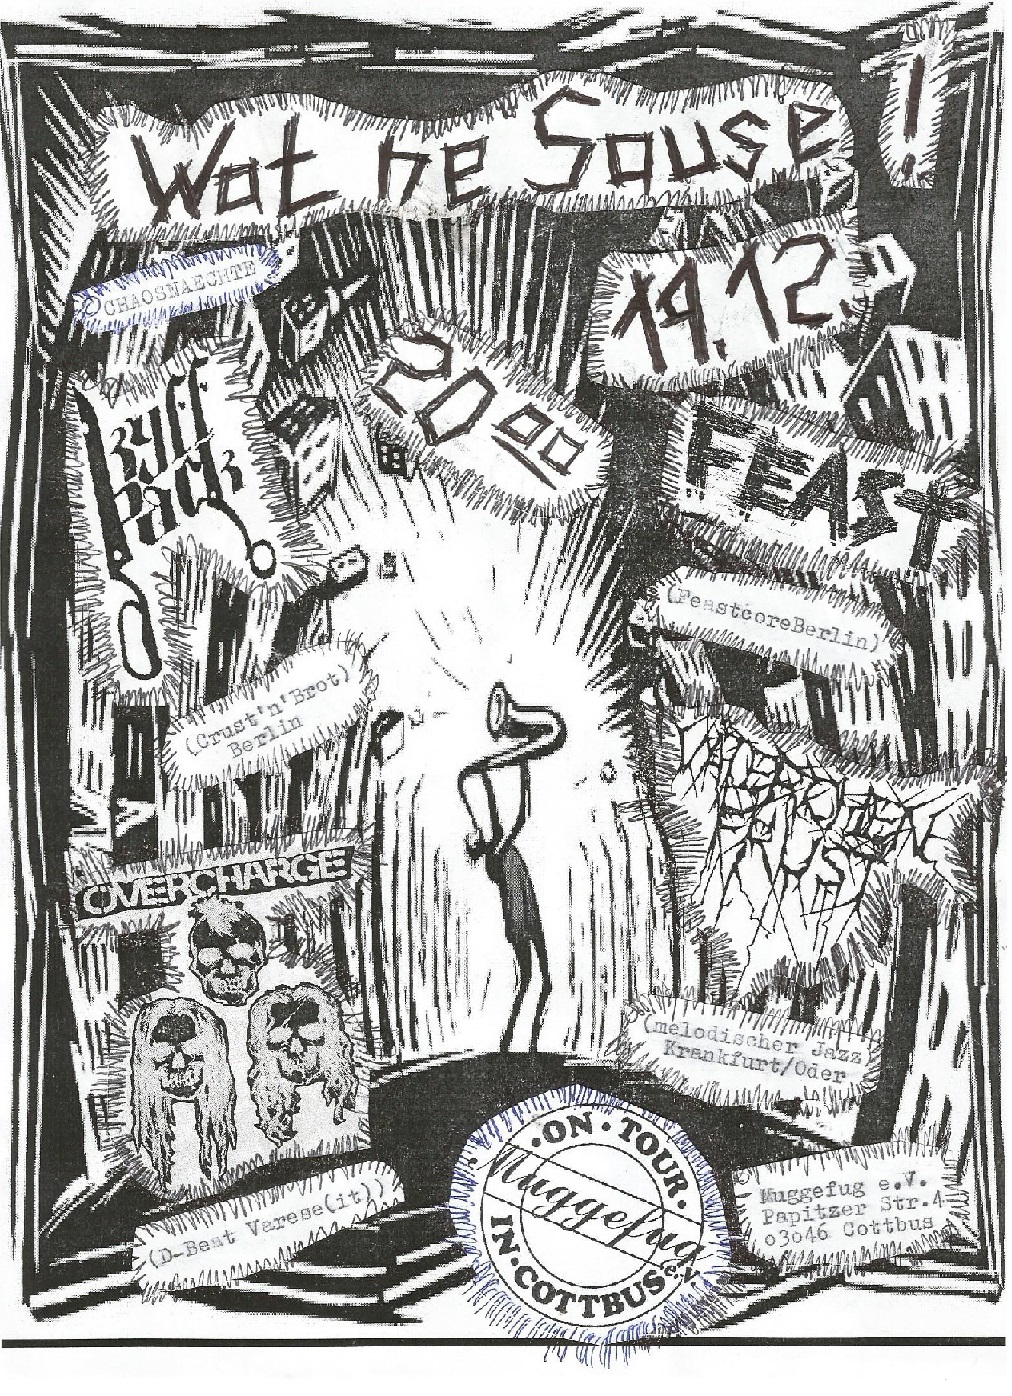 Wat ne Sause!
CHAOSMAECHTE
19.12.
20:00
Ryff
Pack
FEAST
(FeastcoreBerlin)
(Crust'n'Brot)
Berlin
OVERCHARGE
(melodischer Jazz
Krankfurt/Oder
(D-Beat Varese(it))
·ON·TOUR·
Muggefug
e.V.
IN·COTTBUS
Muggefug e.V.
Papitzer Str.4
03046 Cottbus